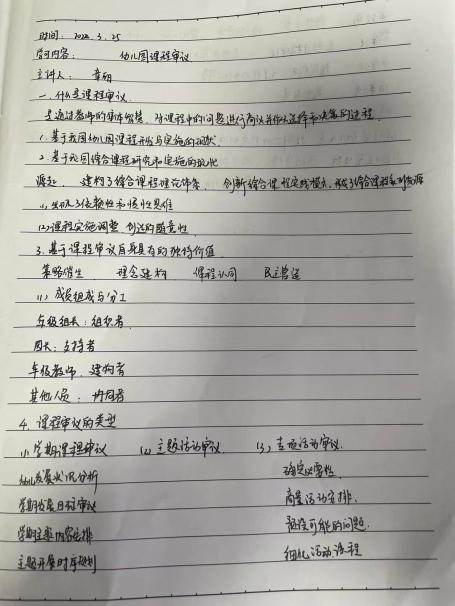 时间：2022.3.25
学习内容：幼儿园课程审议
主讲人：章
一、什么是课程审议
是通过教师的集体智慧，对课程中的问题进行商议并作出选择和决策的过程
1.基于我园幼儿园课程开发与实施的现状
2.基于我园综合课程研究和实施的现状
源起、建构了综合课程理论体系、创新综合课程实践模式、形成了综合课程系列资源
(1)出现了依赖性和惯性思维
(2)课程实施调整、创造的随意性
3.基于课程审议自身具有的独特价值
策略催生 理念建构 课程认同 民主营造
(1)成员组成与分工
年级组长：组织者
园长：支持者
年级教师：建构者
其他人员：协同者
4.课程审议的类型
(1)学期课程审议 (2)主题活动审议 (3)专项活动审议
幼儿发展状况分析 确定必要性
学期发展目标审议 商量活动安排
学期主题内容安排 预设可能的问题
主题开展时序规划 细化活动流程